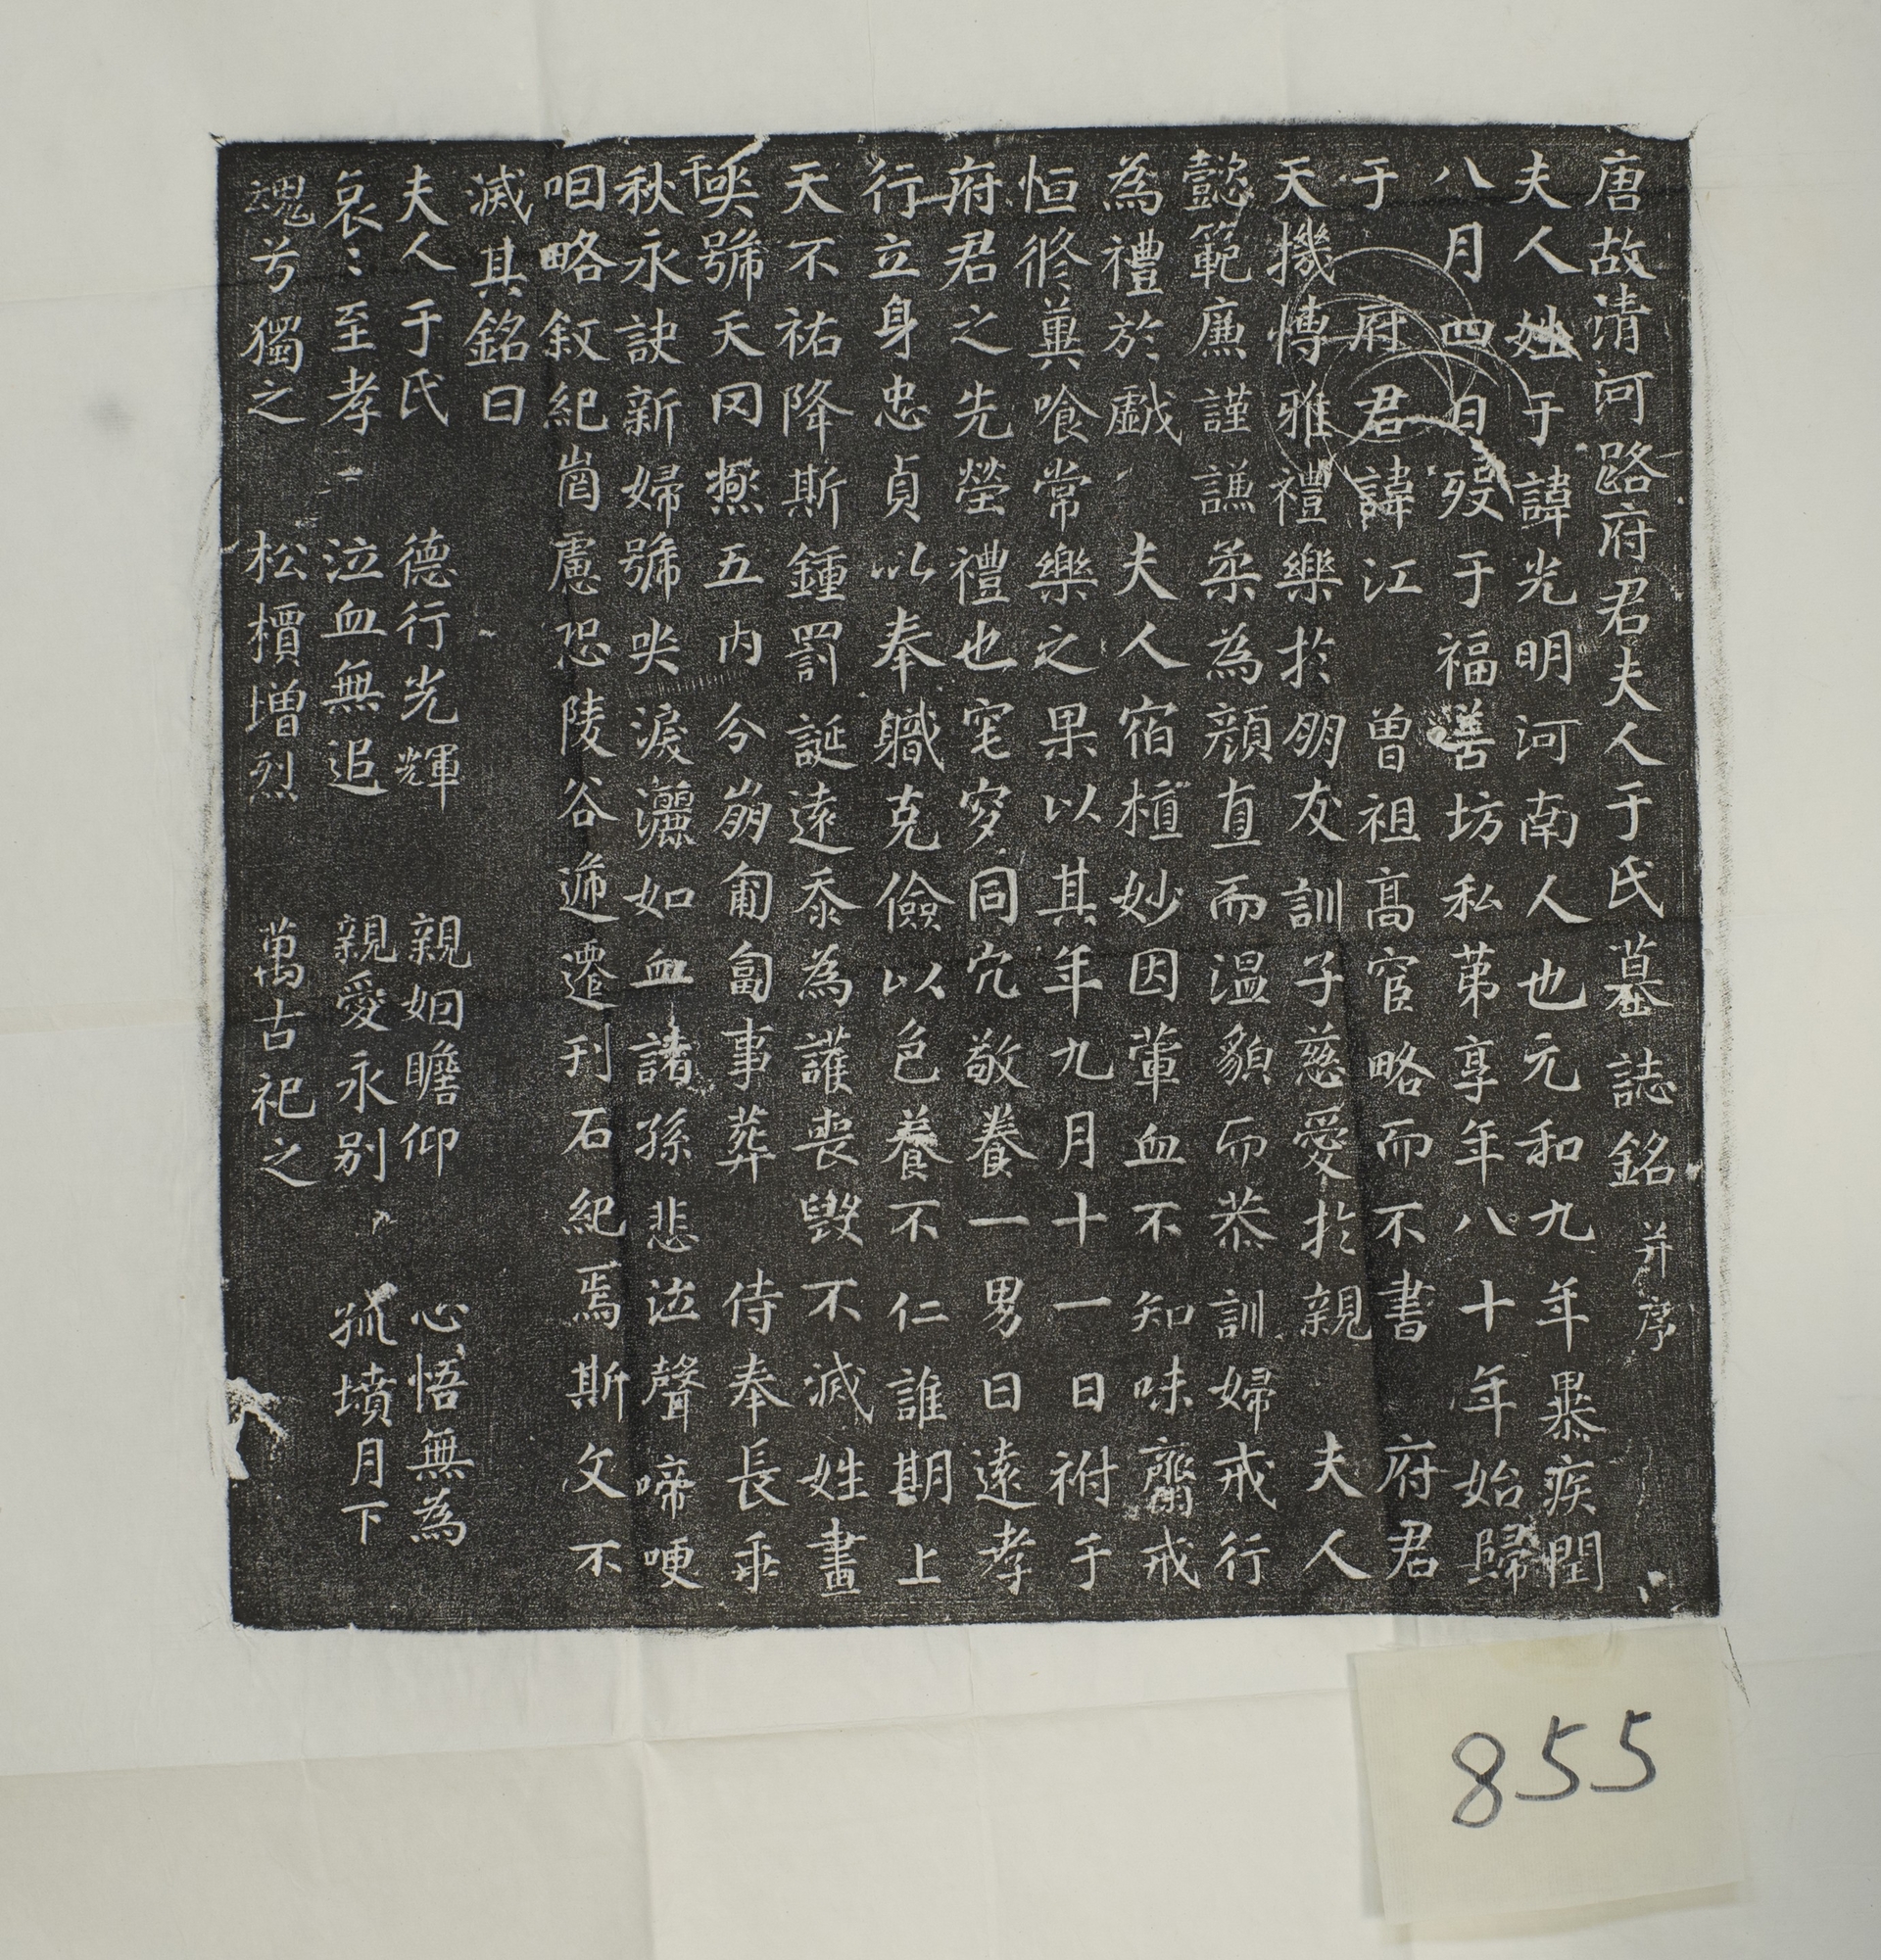 唐故清河路府君夫人于氏墓誌銘并序
夫人姓于諱光明河南人也元和九年暴疾閏
八月四日歿于福善坊私苐享年八十年始歸
于府君諱江曾祖高宦略而不書府君
天機愽雅禮樂於朋友訓子慈愛於親夫人
懿範廉謹謙柔為顏直而溫貌而恭訓婦戒行
為禮於戯夫人宿植妙因葷血不知味齋戒
恒修冀喰常樂之果以其年九月十一日祔于
府君之先塋禮也宅穸同穴敬養一男曰遠孝
行立身忠貞以奉職克儉以色養不仁誰期上
天不祐降斯鍾罰誕遠忝為護喪毀不滅姓晝
哭號天罔燕五内分崩匍匐事葬侍奉長乖千
秋永訣新婦號哭淚灑如血諸孫悲泣聲啼哽
咽略敘紀崗慮恐陵谷遞遷刊石紀焉斯文不
滅其銘曰
夫人于氏德行光輝親姻瞻仰心悟無為
哀〻至孝泣血無追親愛永別孤墳月下
魂兮獨之松檟增烈萬古祀之
855